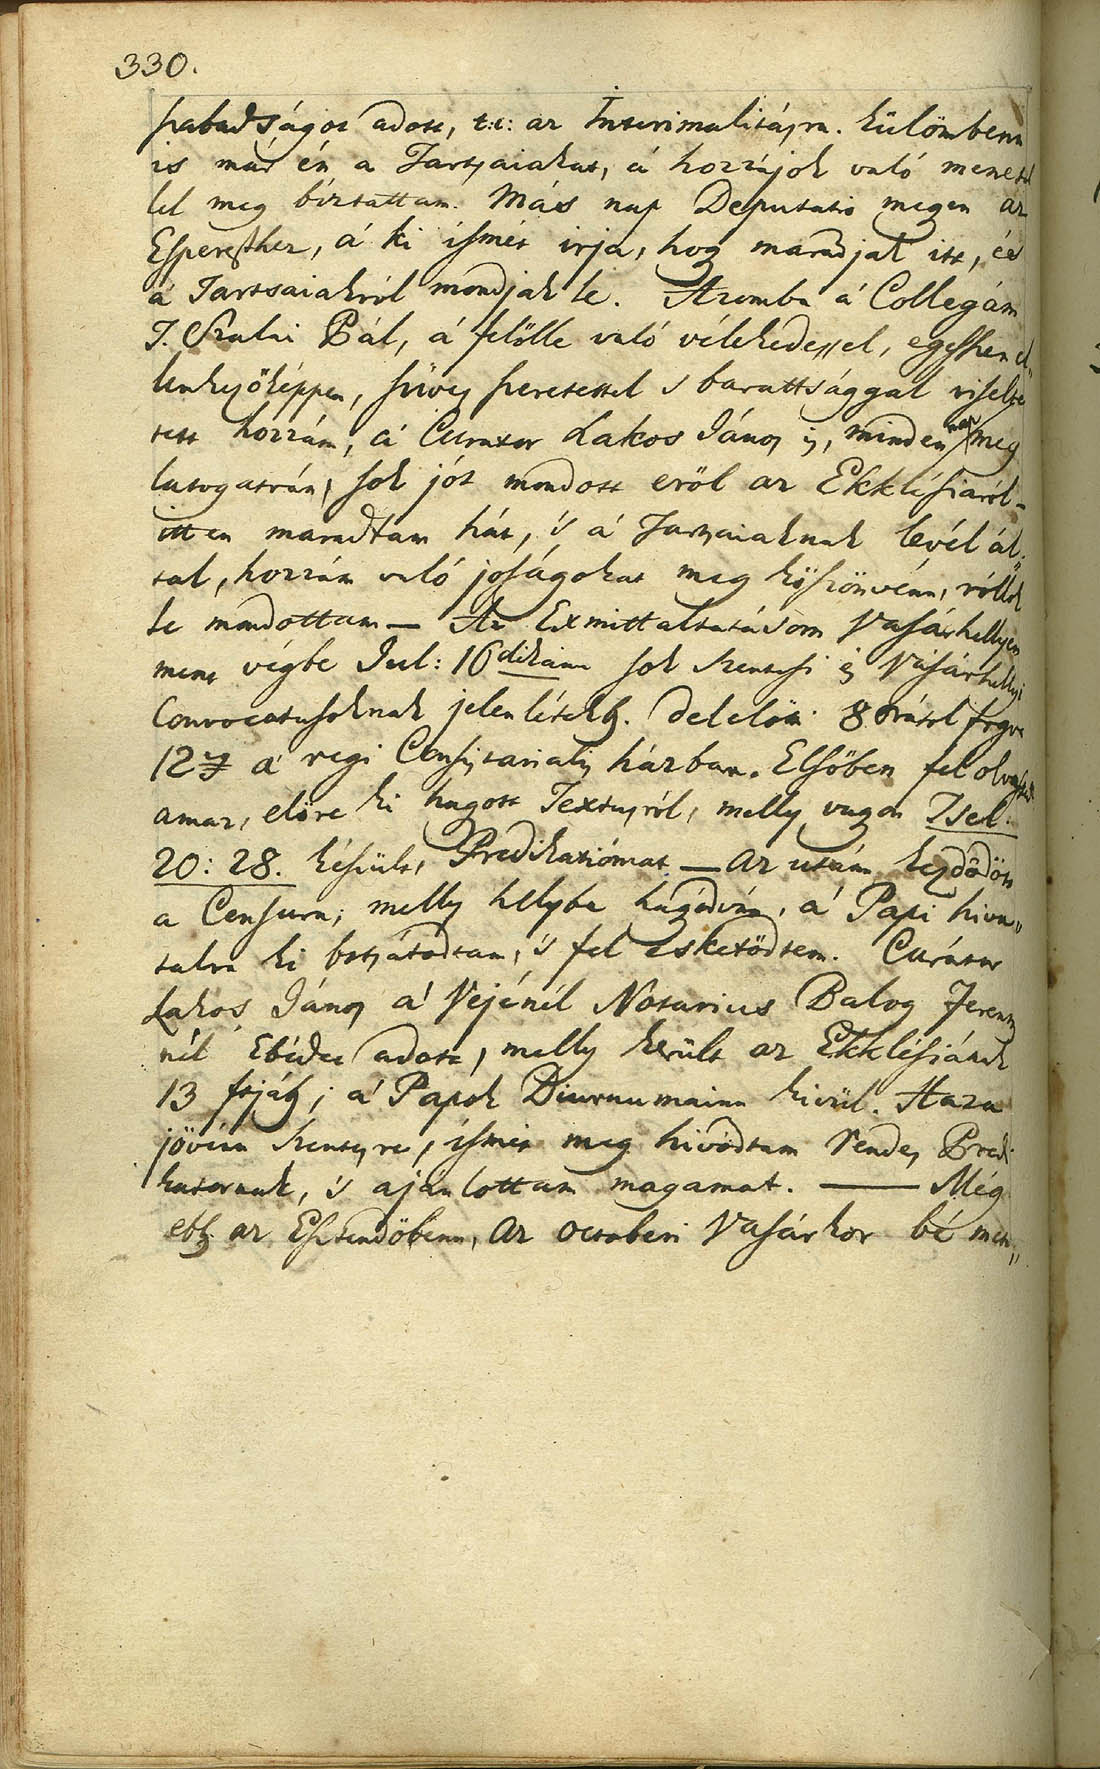 330.
szabadságot adott, t:i: az Interimalitásra. Külömbenn
is már én a Jartsaiakat, á hozzájok való menetel
lel meg bíztattam. Más nap Deputatio megen az
Esperesthez, á ki ismét irja, hog maradjak itt, és
á Jartsaiakról mondjak le. Azomba á Collegám
T. Szalai Pál, á felölle való vélekedessel, egésszen el„
lenkezöképpen, szives szeretettel s barattsággal viselte
tett hozzám, á Curator Lakos János is, minden nap meg
latogatván, sok jót mondott eröl az Ekklésiaról –
itten maradtam hát, 's á Jartsaiaknak levél ál„
tal, hozzám való jóságokat meg köszönvénn, róllok
le mondottam — Az Exmittaltatásom Vasárhellyen
ment végbe Jul: 16dikánn sok Szentesi és Vásárhellyi
Convocatusoknak jelenlétekb. delelött 8 órától fogva
12ig á regi Consistorialis házban. Elsöben fel olvastam
amaz, elöre ki hagott Textusról, melly vagon Tsel:
20: 28. késült, Predikatiómat — az utánn kezdödött
a Censura; melly hellybe hagódván, á Papi hiva„
talra ki botsátodtam, 's fel esketödtem. Curátor
Lakos János á Vejénél Notarius Balog Ferentz
nél Ebédet adott, melly került az Ekklésiának
13 ftjáb; á Papok Diurnumainn kivül. Haza
jövénn Szentesre, ismét meg hivódtam Rendes Predi
katornak, 's ajánlottam magamat. — Még
ebb az Esztendöbenn, az octoberi Vasárkor bé men„